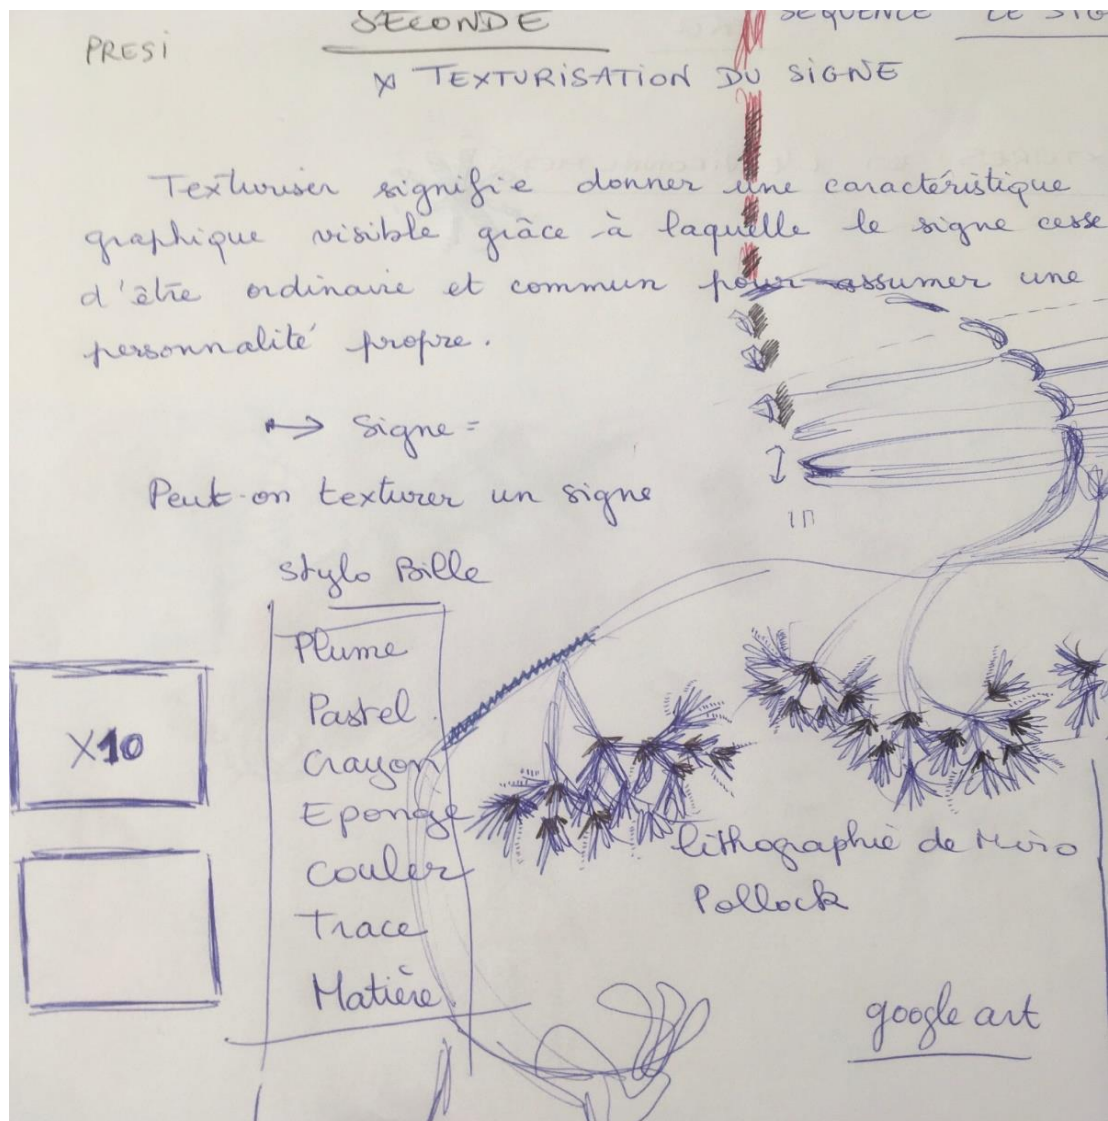 SECONDE
SEQUENCE LE SIG
PRESI
TEXTURISATION DU SIGNE
Texturiser signifie donner une caractéristique
graphique visible grâce à laquelle le signe cesse
d'être ordinaire et commun pour assumer une
personnalité propre.
→ Signe =
Peut-on texturer un signe
Stylo Bille
Plume
Pastel
Crayon
Eponge
Couler
Trace
Matière
X10
lithographie de Miro
Pollock
google art